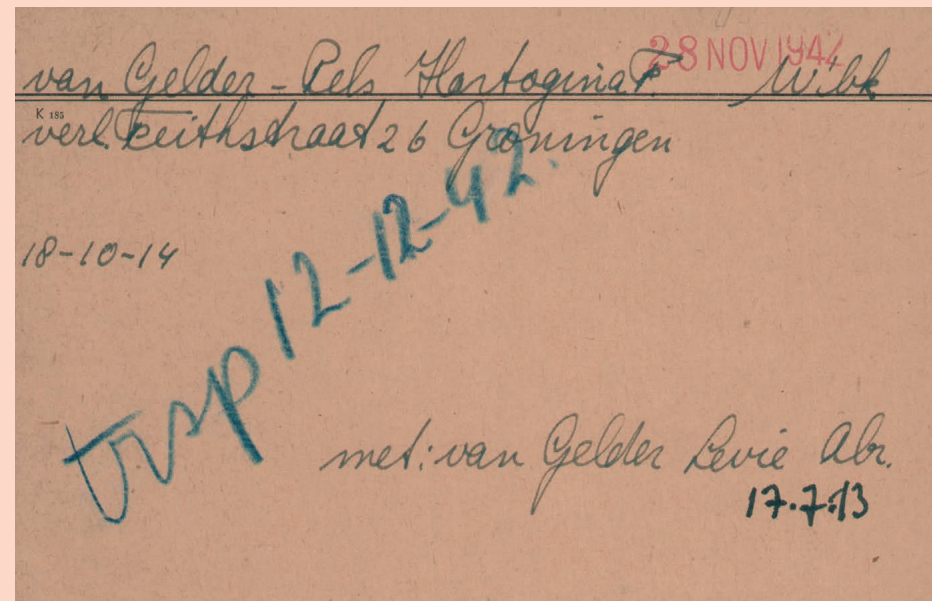 28 NOV 1942
van Gelder - Pels Hartogina F. Wibk
K 185
verl. Keithstraat 26 Groningen
18-10-14
trsp 12-12-42.
met: van Gelder Levie Abr.
17.7.13